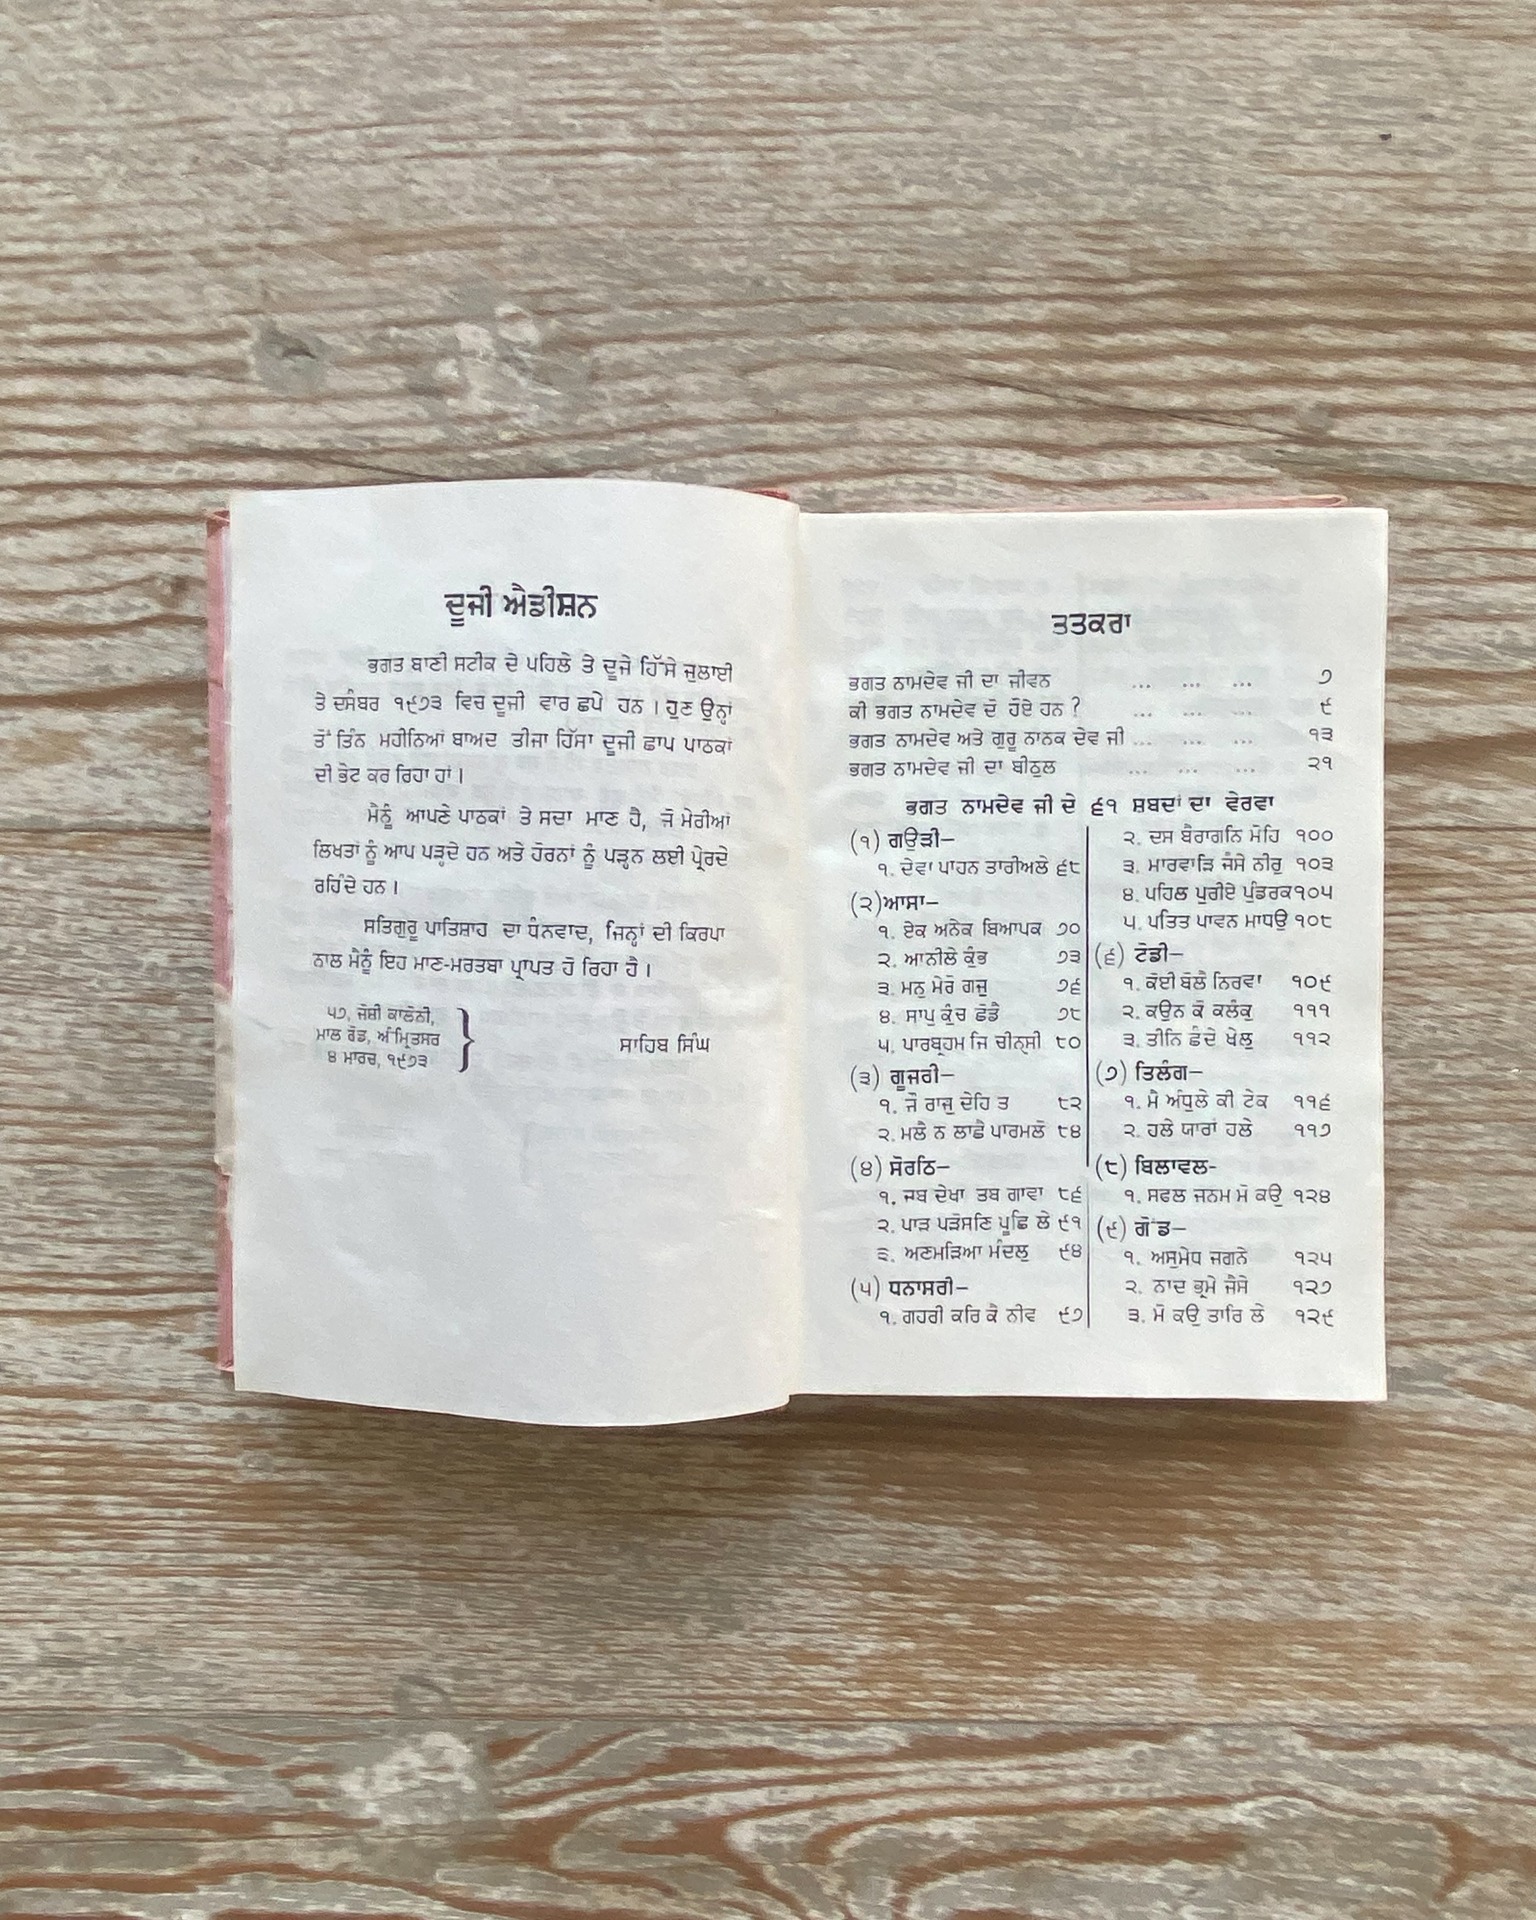 ਦੂਜੀ ਐਡੀਸ਼ਨ
ਭਗਤ ਬਾਣੀ ਸਟੀਕ ਦੇ ਪਹਿਲੇ ਤੇ ਦੂਜੇ ਹਿੱਸੇ ਜੁਲਾਈ
ਤੇ ਦਸੰਬਰ ੧੯੭੩ ਵਿਚ ਦੂਜੀ ਵਾਰ ਛਪੇ ਹਨ । ਹੁਣ ਉਨ੍ਹਾਂ
ਤੋਂ ਤਿੰਨ ਮਹੀਨਿਆਂ ਬਾਅਦ ਤੀਜਾ ਹਿੱਸਾ ਦੂਜੀ ਛਾਪ ਪਾਠਕਾਂ
ਦੀ ਭੇਟ ਕਰ ਰਿਹਾ ਹਾਂ ।
ਮੈਨੂੰ ਆਪਣੇ ਪਾਠਕਾਂ ਤੇ ਸਦਾ ਮਾਣ ਹੈ, ਜੋ ਮੇਰੀਆਂ
ਲਿਖਤਾਂ ਨੂੰ ਆਪ ਪੜ੍ਹਦੇ ਹਨ ਅਤੇ ਹੋਰਨਾਂ ਨੂੰ ਪੜ੍ਹਨ ਲਈ ਪ੍ਰੇਰਦੇ
ਰਹਿੰਦੇ ਹਨ ।
ਸਤਿਗੁਰੂ ਪਾਤਿਸ਼ਾਹ ਦਾ ਧੰਨਵਾਦ, ਜਿਨ੍ਹਾਂ ਦੀ ਕਿਰਪਾ
ਨਾਲ ਮੈਨੂੰ ਇਹ ਮਾਣ-ਮਰਤਬਾ ਪ੍ਰਾਪਤ ਹੋ ਰਿਹਾ ਹੈ ।
੫੭, ਜੋਸ਼ੀ ਕਾਲੋਨੀ,
ਮਾਲ ਰੋਡ, ਅੰਮ੍ਰਿਤਸਰ
੪ ਮਾਰਚ, ੧੯੭੩
ਸਾਹਿਬ ਸਿੰਘ
ਤਤਕਰਾ
ਭਗਤ ਨਾਮਦੇਵ ਜੀ ਦਾ ਜੀਵਨ ... ... ... ੭
ਕੀ ਭਗਤ ਨਾਮਦੇਵ ਦੋ ਹੋਏ ਹਨ ? ... ... ... ੯
ਭਗਤ ਨਾਮਦੇਵ ਅਤੇ ਗੁਰੂ ਨਾਨਕ ਦੇਵ ਜੀ ... ... ... ੧੩
ਭਗਤ ਨਾਮਦੇਵ ਜੀ ਦਾ ਬੀਠੁਲ ... ... ... ੨੧
ਭਗਤ ਨਾਮਦੇਵ ਜੀ ਦੇ ੬੧ ਸ਼ਬਦਾਂ ਦਾ ਵੇਰਵਾ
(੧) ਗਉੜੀ–
੧. ਦੇਵਾ ਪਾਹਨ ਤਾਰੀਅਲੇ ੬੮
(੨)ਆਸਾ–
੧. ਏਕ ਅਨੇਕ ਬਿਆਪਕ ੭੦
੨. ਆਨੀਲੇ ਕੁੰਭ ੭੩
੩. ਮਨੁ ਮੇਰੋ ਗਜੁ ੭੬
੪. ਸਾਪੁ ਕੁੰਚ ਛੋਡੈ ੭੮
੫. ਪਾਰਬ੍ਰਹਮ ਜਿ ਚੀਨ੍ਸੀ ੮੦
(੩) ਗੂਜਰੀ–
੧. ਜੋ ਰਾਜੁ ਦੇਹਿ ਤ ੮੨
੨. ਮਲੈ ਨ ਲਾਛੈ ਪਾਰਮਲੋ ੮੪
(੪) ਸੋਰਠਿ–
੧. ਜਬ ਦੇਖਾ ਤਬ ਗਾਵਾ ੮੬
੨. ਪਾੜ ਪੜੋਸਣਿ ਪੂਛਿ ਲੇ ੯੧
੩. ਅਣਮੜਿਆ ਮੰਦਲੁ ੯੪
(੫) ਧਨਾਸਰੀ–
੧. ਗਹਰੀ ਕਰਿ ਕੈ ਨੀਵ ੯੭
੨. ਦਸ ਬੈਰਾਗਨਿ ਮੋਹਿ ੧੦੦
੩. ਮਾਰਵਾੜਿ ਜੈਸੇ ਨੀਰੁ ੧੦੩
੪. ਪਹਿਲ ਪੁਰੀਏ ਪੁੰਡਰਕ ੧੦੫
੫. ਪਤਿਤ ਪਾਵਨ ਮਾਧਉ ੧੦੮
(੬) ਟੋਡੀ–
੧. ਕੋਈ ਬੋਲੈ ਨਿਰਵਾ ੧੦੯
੨. ਕਉਨ ਕੋ ਕਲੰਕੁ ੧੧੧
੩. ਤੀਨਿ ਛੰਦੇ ਖੇਲੁ ੧੧੨
(੭) ਤਿਲੰਗ–
੧. ਮੈ ਅੰਧੁਲੇ ਕੀ ਟੇਕ ੧੧੬
੨. ਹਲੇ ਯਾਰਾਂ ਹਲੇ ੧੧੭
(੮) ਬਿਲਾਵਲ-
੧. ਸਫਲ ਜਨਮ ਮੋ ਕਉ ੧੨੪
(੯) ਗੋਂਡ–
੧. ਅਸੁਮੇਧ ਜਗਨੇ ੧੨੫
੨. ਨਾਦ ਭ੍ਰਮੇ ਜੈਸੇ ੧੨੭
੩. ਮੋ ਕਉ ਤਾਰਿ ਲੇ ੧੨੯